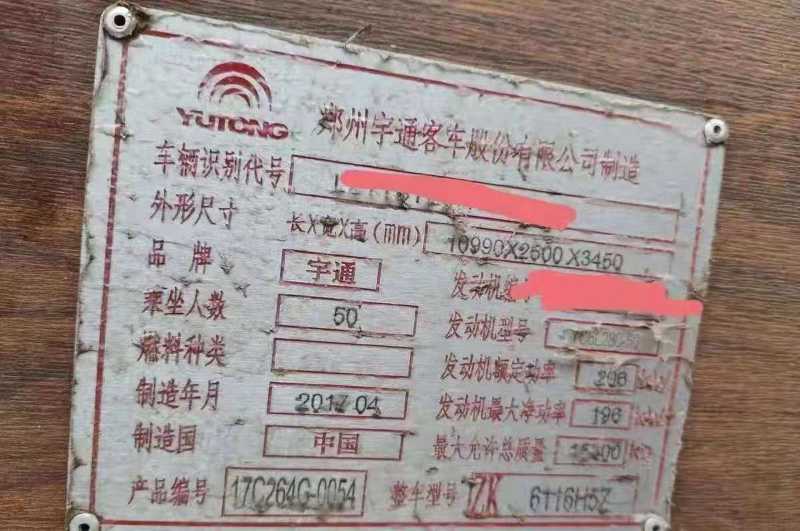 YUTONG
郑州宇通客车股份有限公司制造
车辆识别代号
外形尺寸 长X宽X高(mm) 10990X2500X3450
品牌 宇通
发动机
乘坐人数 50
发动机型号
燃料种类
发动机额定功率 206
制造年月 2017 04
发动机最大净功率 196
制造国 中国
最大允许总质量
产品编号 17C264G-0054
整车型号 ZK 6116H5Z